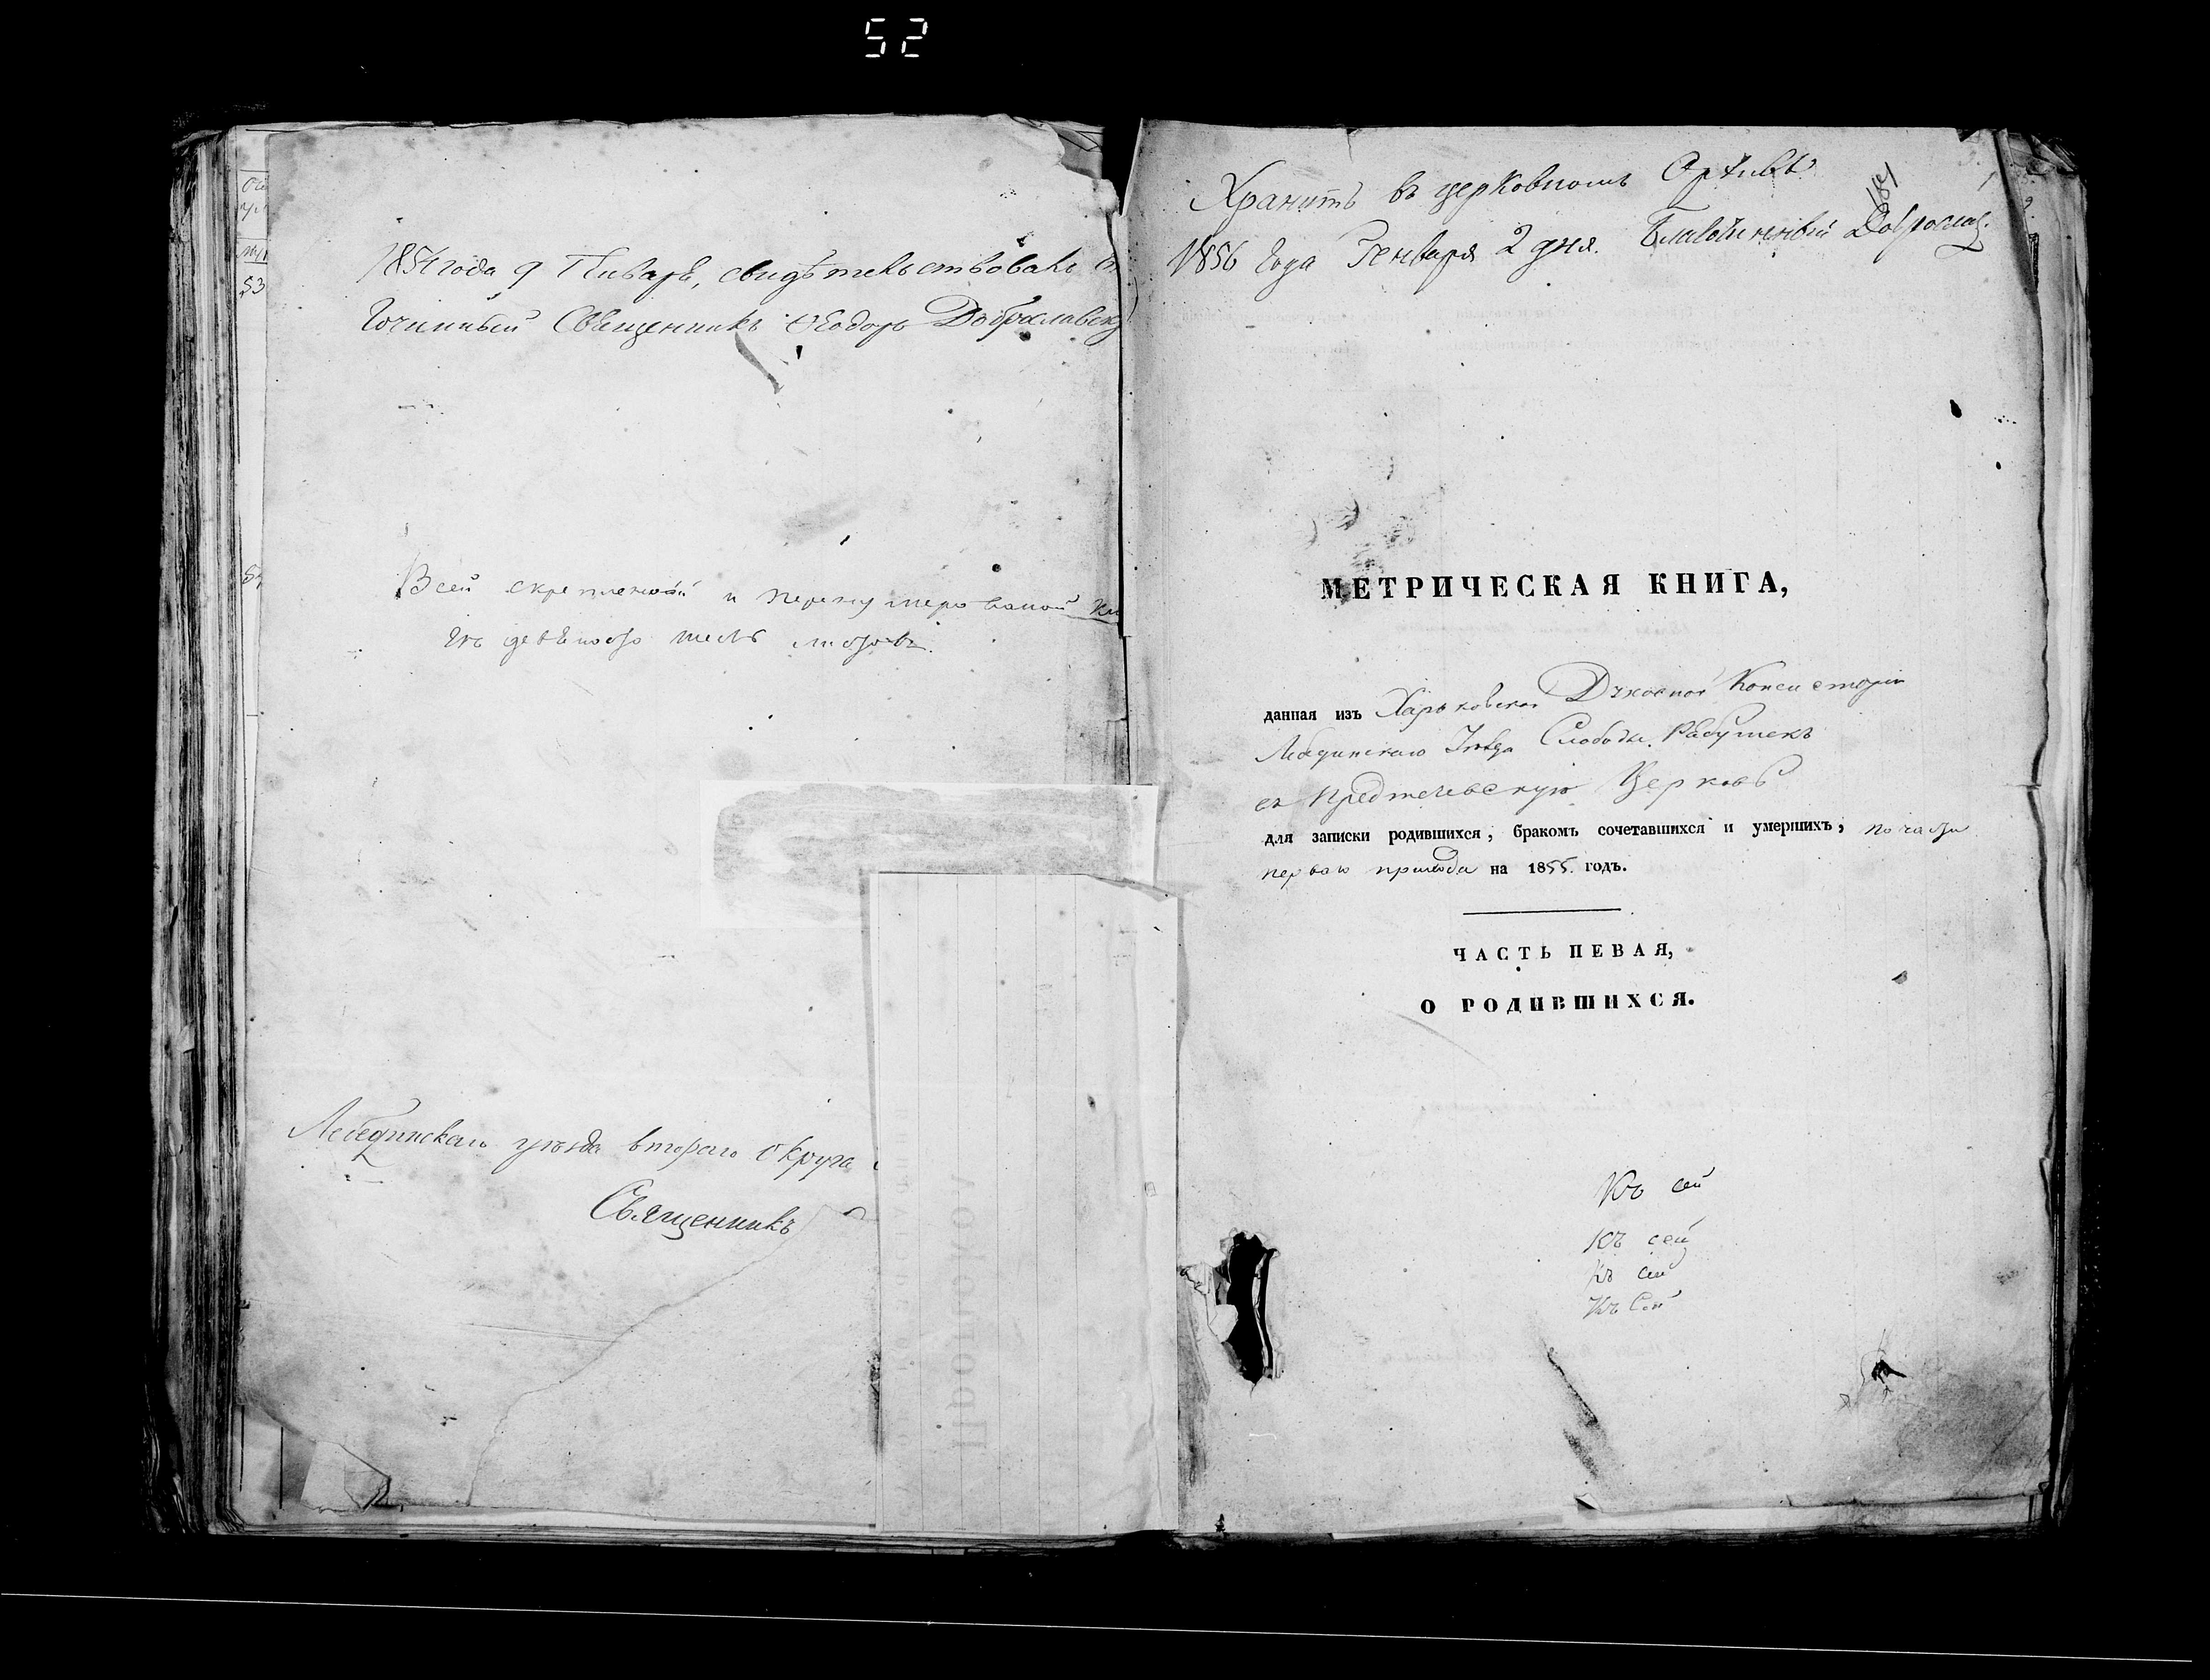 52
1854 года 9 Генваря, свидѣтельствовалъ
гочинный Священникъ Ѳеодоръ Добраславск
Всей скрепленной и перенумерованой кн
гѣ девѣносто шесть листовъ.
Лебединскаго уѣзда втораго округа
Священникъ
53
Хранить въ церковномъ Архивѣ
1856 года Генваря 2 дня. Благочинный Доброслав.
181
МЕТРИЧЕСКАЯ КНИГА,
данная изъ Харьковской Духовной Консисторіи
Лебединскаго Уѣзда Слободы Рабушекъ
въ Предтечевскую Церковь
для записки родившихся, бракомъ сочетавшихся и умершихъ, по части
перваго прихода на 1855. годъ.
ЧАСТЬ ПЕВАЯ,
О РОДИВШИХСЯ.
Къ сей
Къ сей
Къ сей
Къ Сей